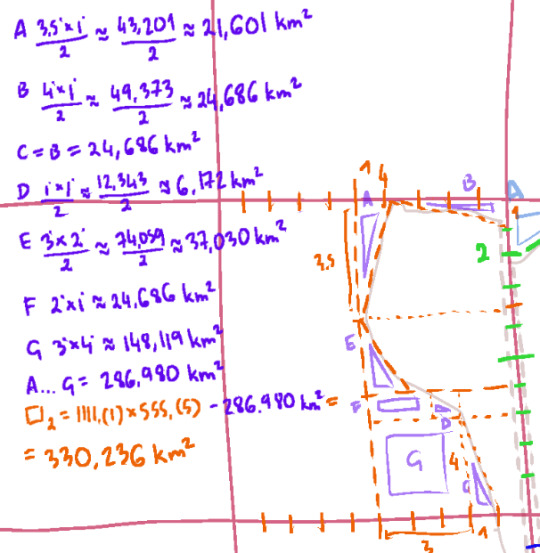 A 3,5°×1°/2 ≈ 43,201/2 ≈ 21,601 km²
B 4°×1°/2 ≈ 49,373/2 ≈ 24,686 km²
C = B = 24,686 km²
D 1°×1°/2 ≈ 12,343/2 ≈ 6,172 km²
E 3°×2°/2 ≈ 74,059/2 ≈ 37,030 km²
F 2°×1° ≈ 24,686 km²
G 3°×4° ≈ 148,119 km²
A...G = 286,980 km²
□₂ = 1111,(1) × 555,(5) - 286,980 km² =
= 330,236 km²
1 4
A
B
A
1
2
3,5
E
F
D
D
G
4
C
3
1